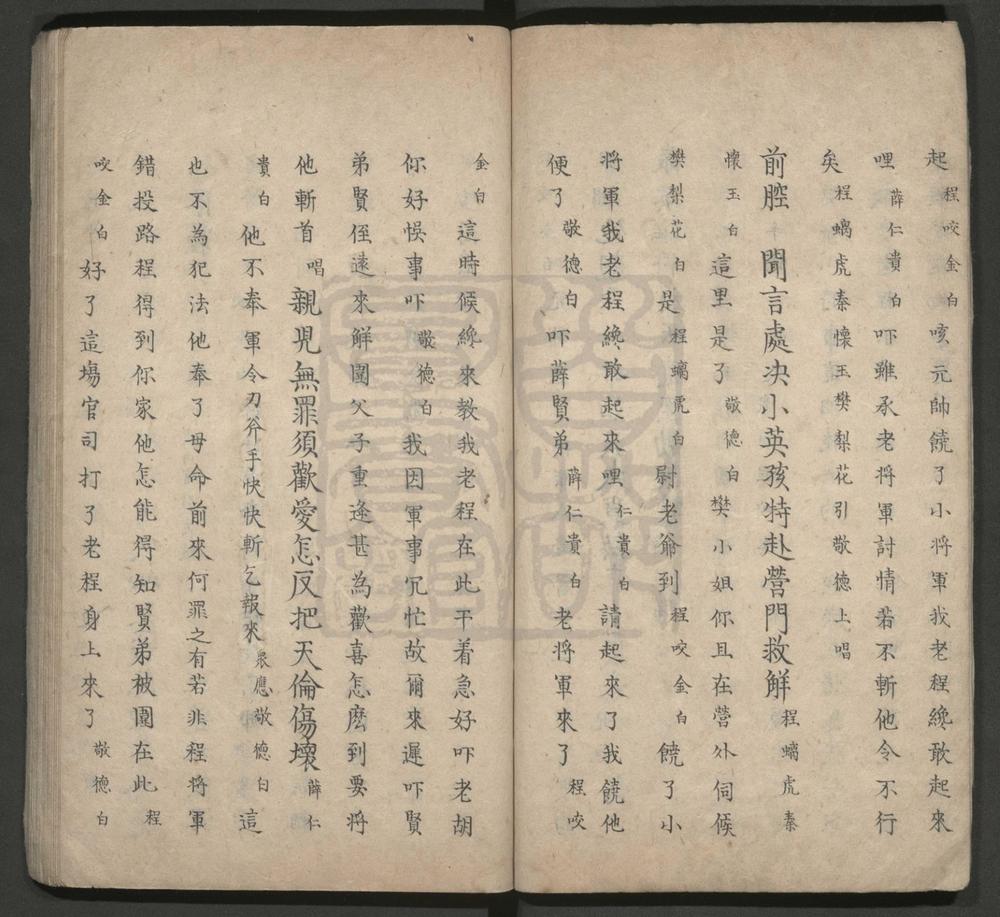 起程咬金白咳元帥饒了小將軍我老程纔敢起來
哩薛仁貴白吓雖承老將軍討情若不斬他令不行
矣程螭虎秦懷玉樊梨花引敬德上唱
前腔聞言處決小英孩特赴營門救解程螭虎秦
懷玉白這里是了敬德白樊小姐你且在營外伺候
樊梨花白是程螭虎白尉老爺到程咬金白饒了小
將軍我老程纔敢起來哩仁貴白請起來了我饒他
便了敬德白吓薛賢弟薛仁貴白老將軍來了程咬
金白這時候纔來教我老程在此干着急好吓老胡
你好悮事吓敬德白我因軍事冗忙故爾來遲吓賢
弟賢侄遠來解圍父子重逢甚為歡喜怎麽到要將
他斬首唱親兒無罪須歡愛怎反把天倫傷壞薛仁
貴白他不奉軍令刀斧手快快斬乞報來眾應敬德白這
也不為犯法他奉了母命前來何罪之有若非程將軍
錯投路程得到你家他怎能得知賢弟被圍在此程
咬金白好了這場官司打了老程身上來了敬德白